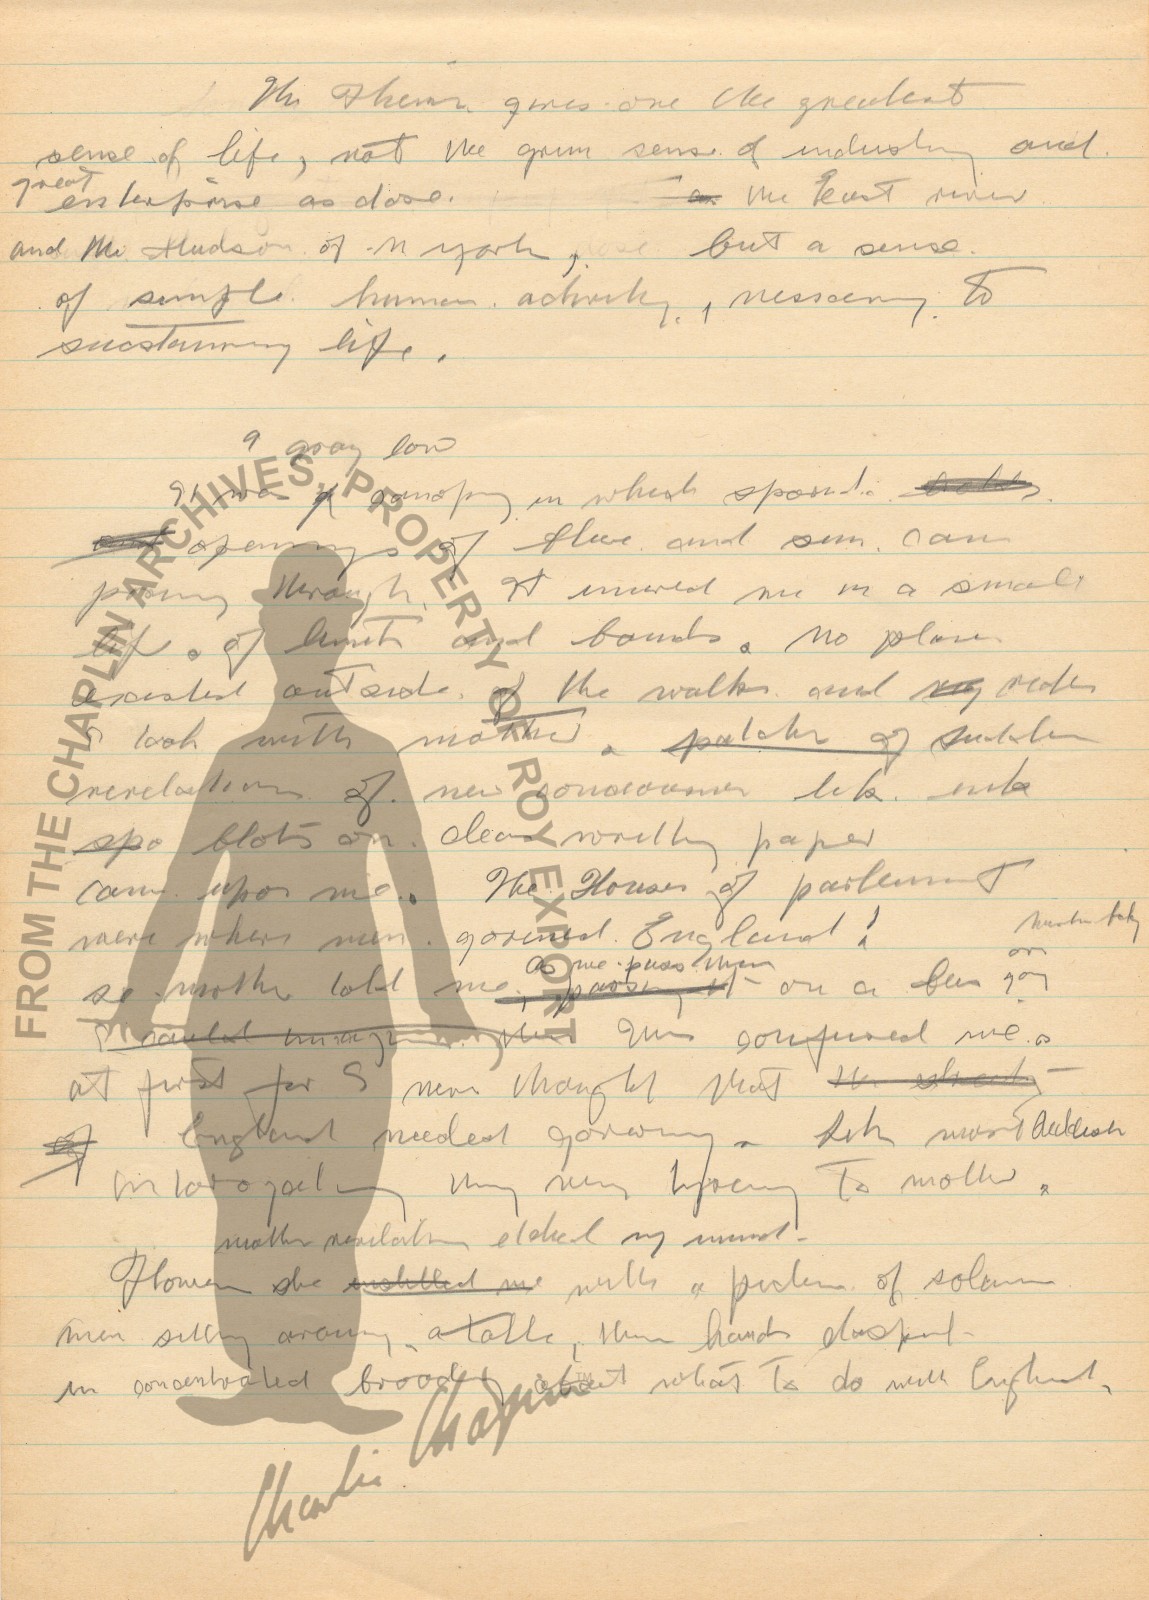 The Thems gives one the greatest
sense of life, not the grim sense of industry and
great
enterprise as dose. as the East river
and the Hudson of N york, but a sense
of simple human activity, nessacery to
sustaining life.
a gray low
It was a canopy in which
openings of blue and sun cam
through. It me in a small
life of limits and bounds. No places
existed outside of the walks and my rides
I took with mother. of sudden
revelations of new like ink
spo blots on clean writting paper
came upon me. The Houses of parlement
were where men governed England!
so mother told me, as we pass them passing it on a bus
on
This confused me
at first for I never thought that
of England needed governing. like most
to mother.
mother revelation etched my mind
she instilled me with a picture of solemn
men sitting around a table, their hands clasped
in concentrated brooding about what to do with England.
FROM THE CHAPLIN ARCHIVES, PROPERTY OF ROY EXPORT
TM
Charlie Chaplin